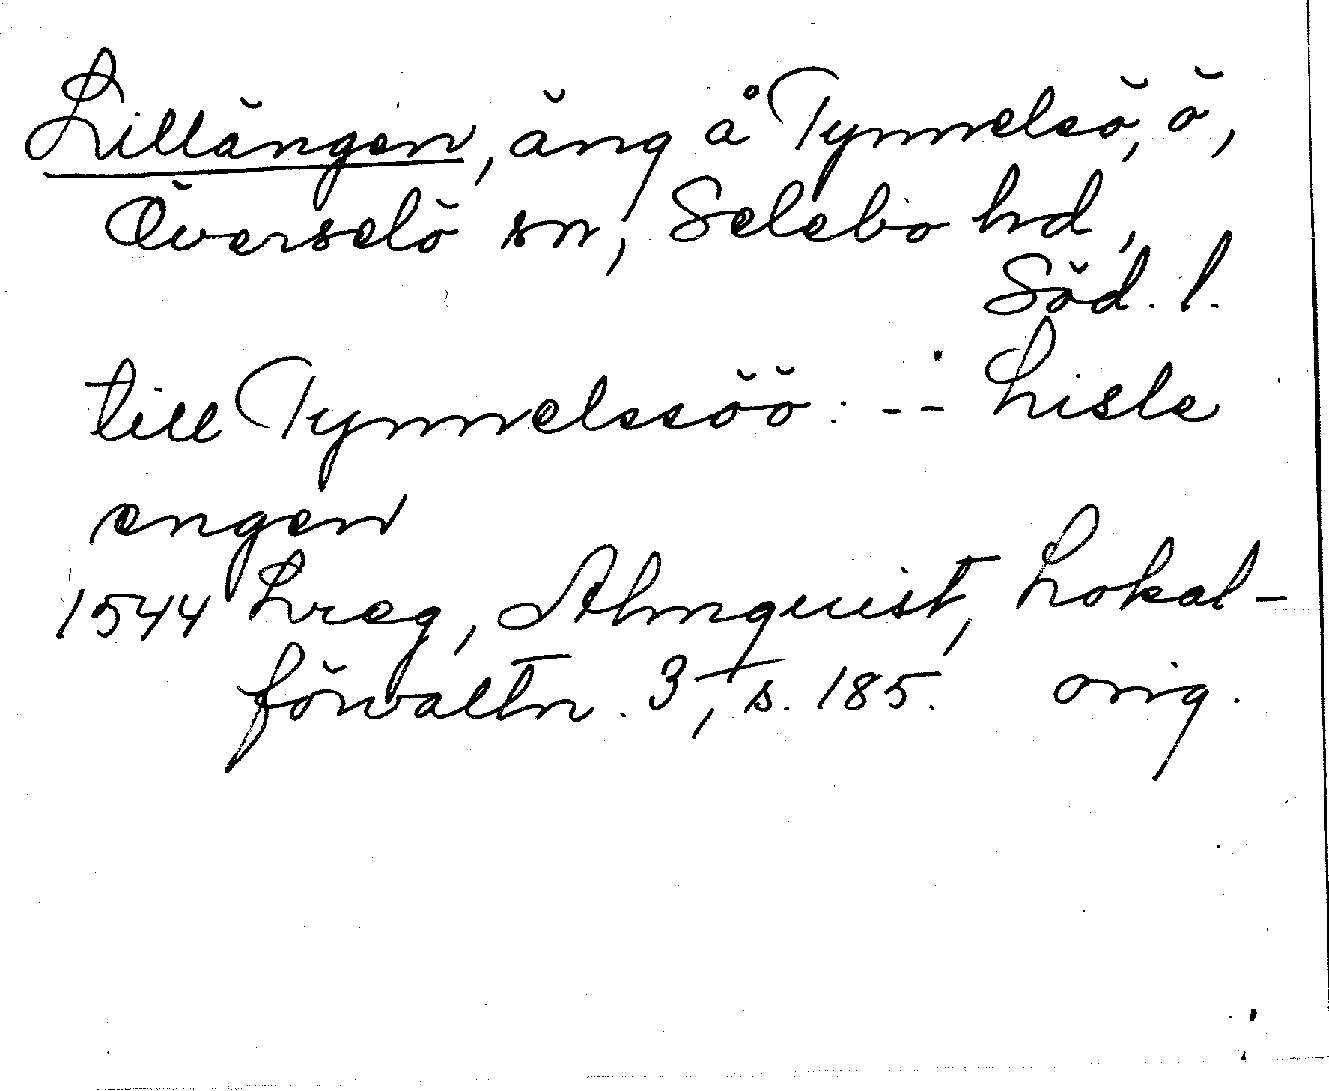 Lillängen, äng å Tynnelsö, ö,
Överselö sn, Selebo hd,
Söd. l.
till Tynnelssöö. -- Lisle
engen
1544 Lreg, Almquist, Lokal-
förvaltn. 3, s. 185. orig.